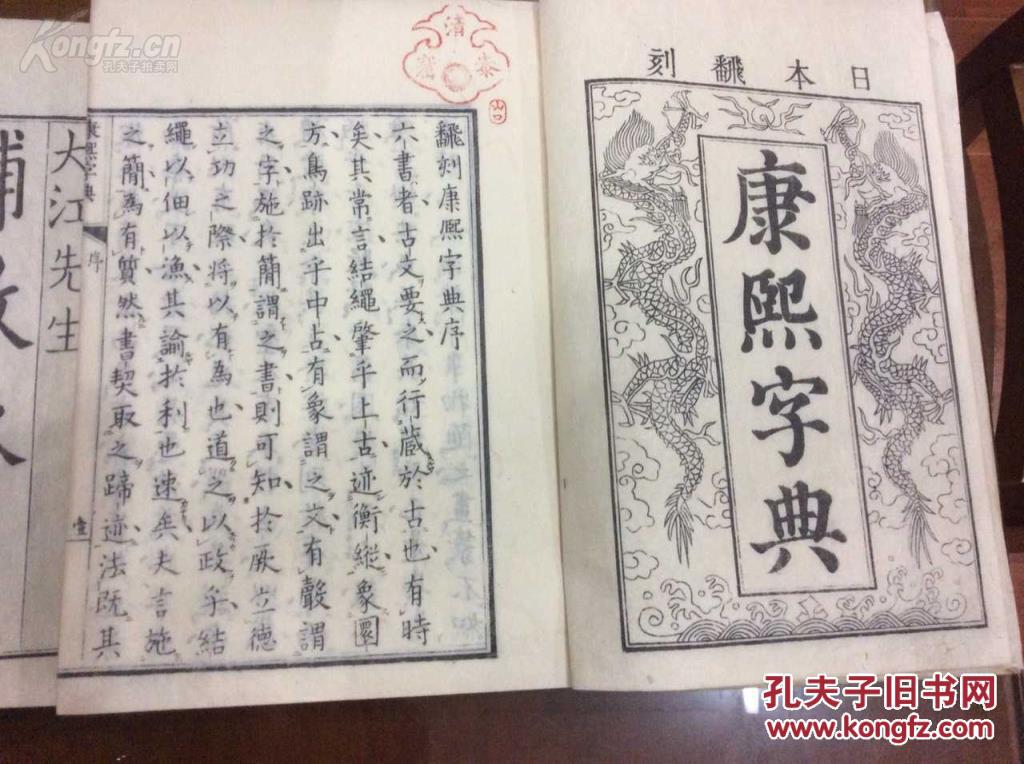 日本飜刻
康熙字典
飜刻康熙字典序
六書者古文要之而行藏於古也有時
矣其常言結繩肇乎上古迹衡縱象圜
方鳥跡出乎中占有象謂之文有聲謂
之字施於簡謂之書則可知於厥立德
立功之際將以有為也道之以政乎結
繩以佃以漁其論於利也速矣夫言施
之簡為有質然書契取之蹄迹法既其
康熙字典
序
壹
大江先生
清
泰
山口
Kongfz.cn
孔夫子拍卖网
孔夫子旧书网
www.kongfz.com